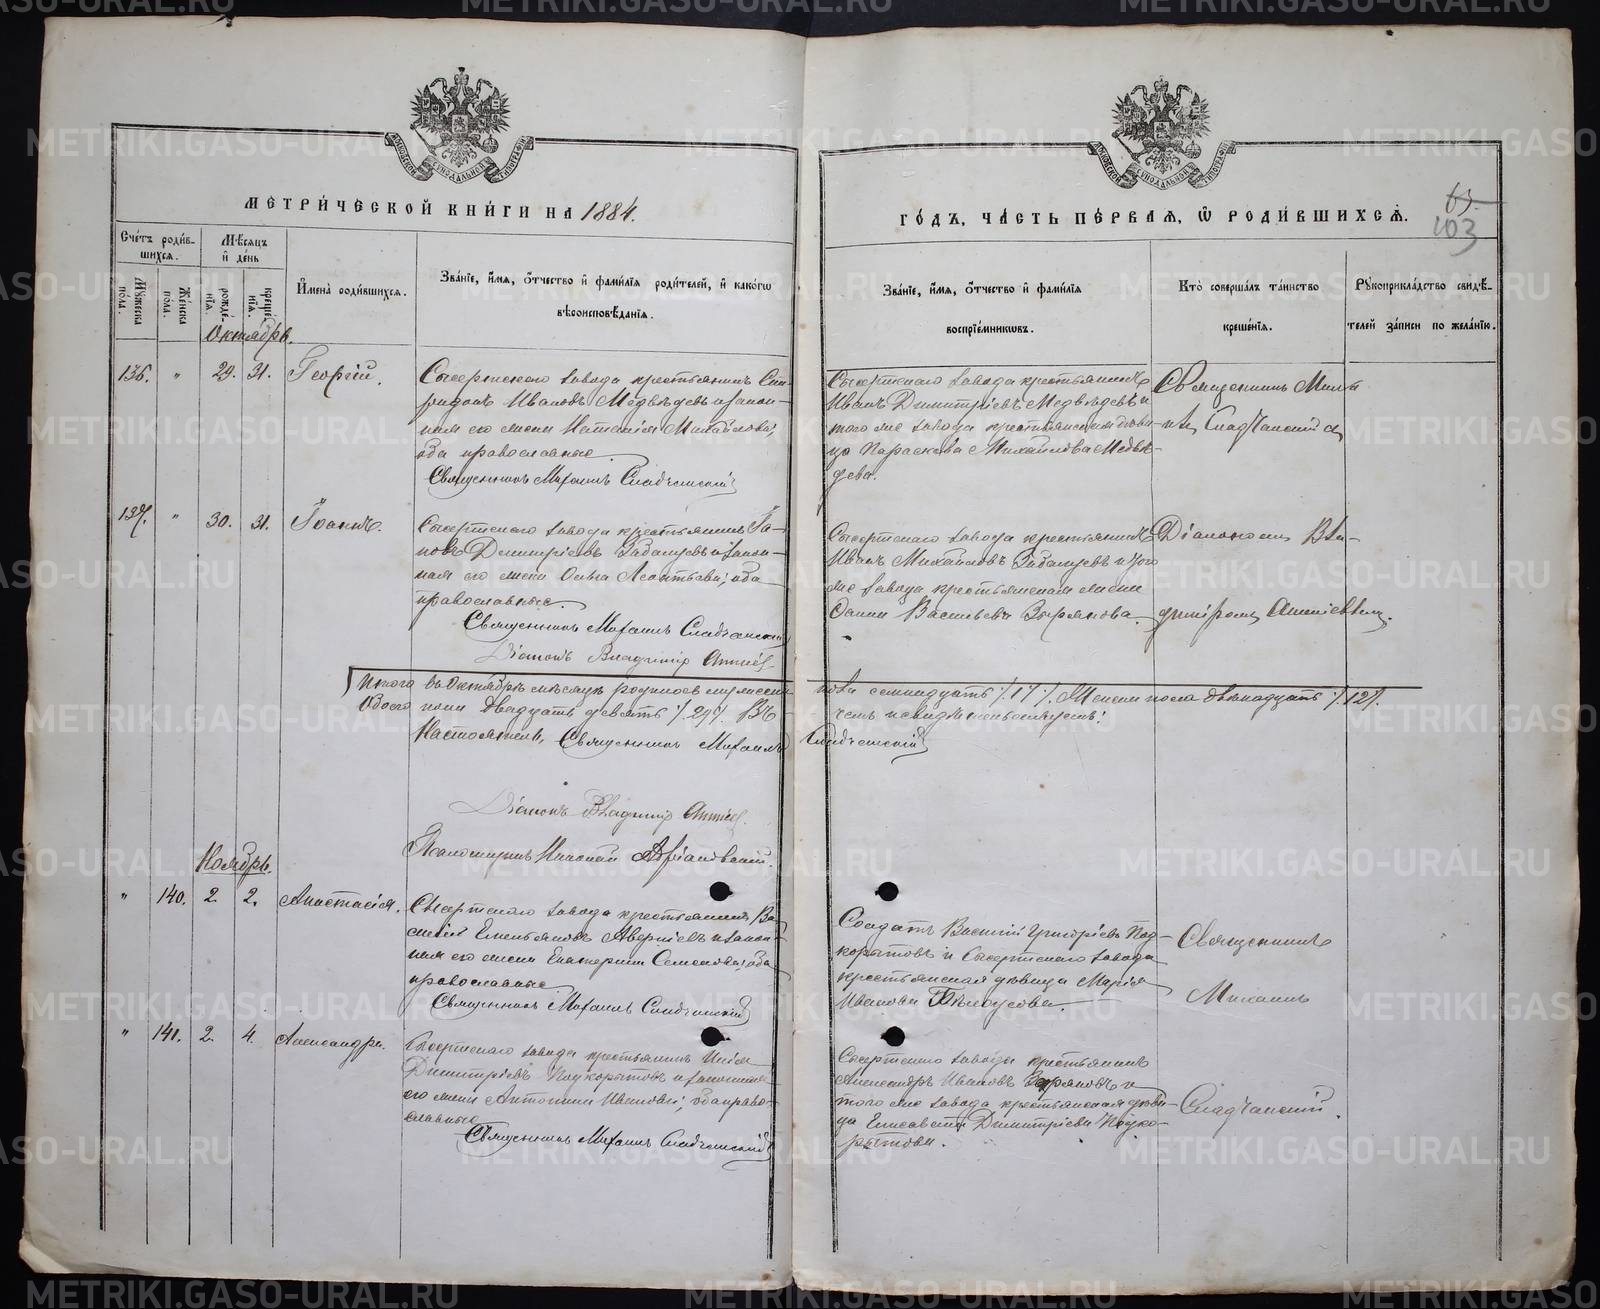 МЕТРИ́ЧЕСКОЙ КНИ́ГИ НА 1884.
ГО́ДЪ, ЧА́СТЬ ПЕ́РВАЯ, Ѿ РОДИ́ВШИХСѦ.
63.
103
Сче́тъ роди́в-
шихся.
Му́жеска по́ла.
Же́нска по́ла.
Мѣ́сяцъ и҆ де́нь
рожде́-нїѧ.
креще́-нїѧ.
И҆мена̀ роди́вшихся.
Зва́нїе, и҆́мѧ, ѻ҆́тчество и҆ фами́лїѧ роди́телей, и҆ како́гѡ
вѣ́роисповѣ́данїѧ.
Зва́нїе, и҆́мѧ, ѻ҆́тчество и҆ фами́лїѧ
воспрїе́мникѡвъ.
Кто̀ соверша́лъ та́инство
креще́нїѧ.
Рꙋкоприкла́дство свидѣ́-
телей за́писи по жела́нїю.
Октябрь.
136. " 29. 31. Георгій.
Сысертскаго завода крестьянинъ Спи-
ридонъ Ивановъ Медвѣдевъ и закон-
ная его жена Наталія Михайлова,
оба православные.
Священникъ Михаилъ Сладчанскій
Сысертскаго завода крестьянинъ
Иванъ Димитріевъ Медвѣдевъ и
того же завода крестьянская дѣви-
ца Параскева Михайлова Медвѣ-
дева.
Священникъ
Сладчанскій
137. " 30. 31. Іоаннъ.
Сысертскаго завода крестьянинъ Іа-
ковъ Димитріевъ и закон-
ная его жена Ольга Леонтьева, оба
православные.
Священникъ Михаилъ Сладчанскій
Діаконъ Владиміръ
Сысертскаго завода крестьянинъ
Иванъ Михайловъ и того
же завода крестьянская жена
Васильева Зырянова.
Діаконом Вла-
Итого въ Октябрѣ мѣсяцѣ родилось мужеска
пола семнадцать /17/. Женска пола двѣнадцать /12/.
Обоего пола двадцать девять /29/. Въ
чемъ и свидѣтельствуемъ:
Настоятель, Священникъ Михаилъ
Сладчанскій
Діаконъ Владиміръ
Псаломщикъ Николай Адріановскій.
Ноябрь.
" 140. 2. 2. Анастасія.
Сысертскаго завода крестьянинъ Ва-
силій Емельяновъ Аверкіевъ и закон-
ная его жена Екатерина Семенова, оба
православные.
Священникъ Михаилъ Сладчанскій
Солдатъ Василій Григорьевъ Под-
корытовъ и Сысертскаго завода
крестьянская дѣвица Марія
Иванова Бѣлоусова.
Священникъ
Михаилъ
" 141. 2. 4. Александра.
Сысертскаго завода крестьянинъ Илія
Димитріевъ Подкорытовъ и законная
его жена Антонина Иванова, оба право-
славные.
Священникъ Михаилъ Сладчанскій
Сысертскаго завода крестьянинъ
Александръ Ивановъ Зыряновъ и
того же завода крестьянская дѣви-
ца Елисавета Димитріева Подко-
рытова.
Сладчанскій.
METRIKI.GASO-URAL.RU